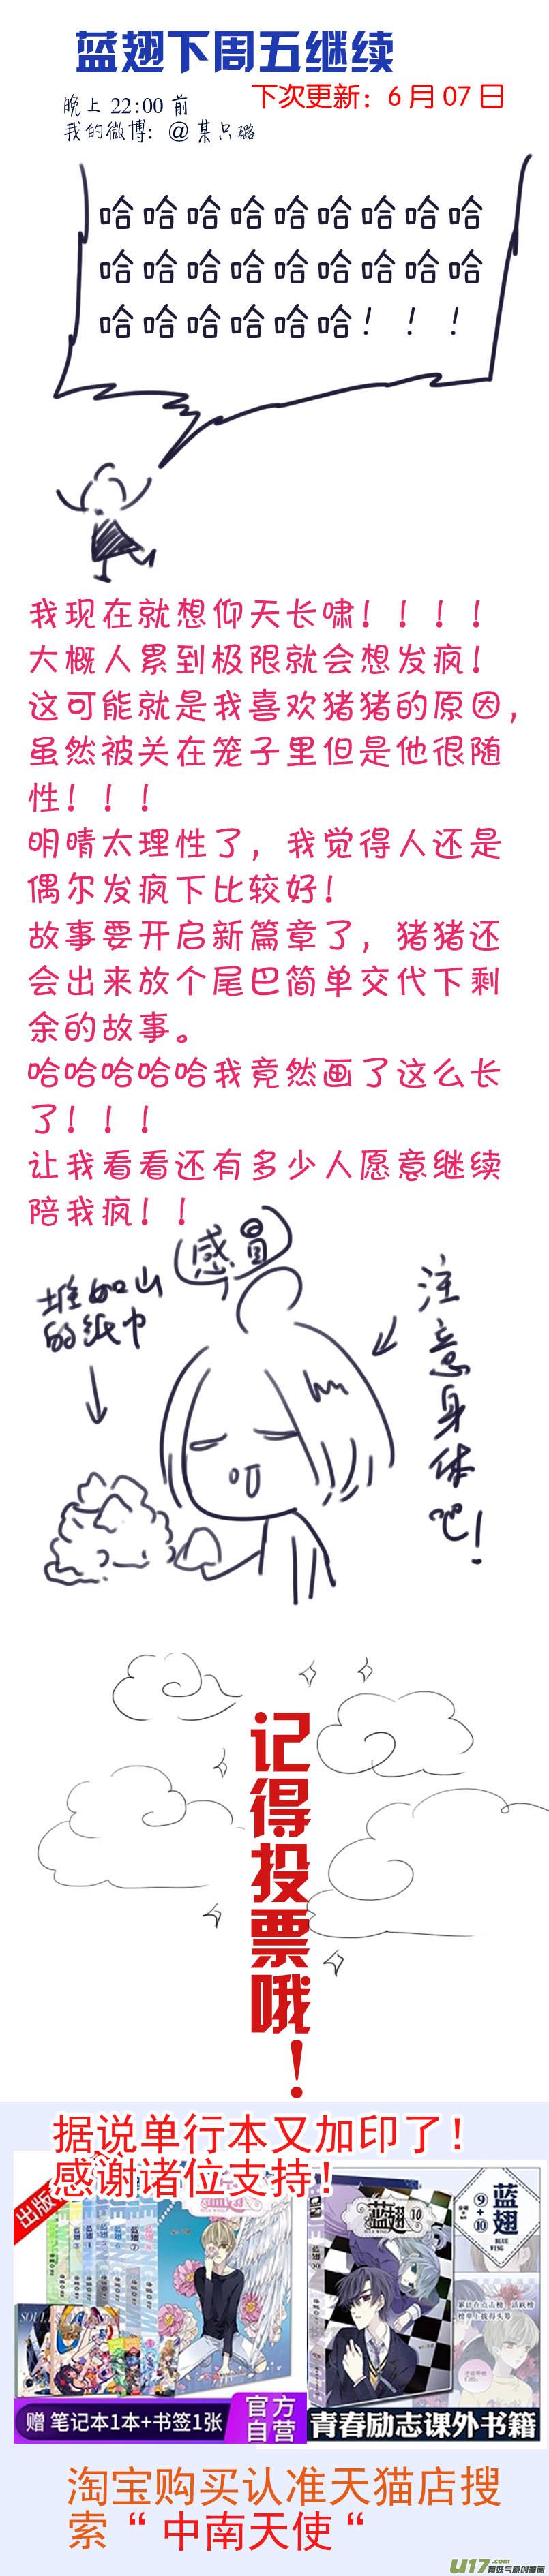 蓝翅下周五继续
晚上 22:00 前
下次更新：6月07日
我的微博：@某只璐
哈哈哈哈哈哈哈哈哈
哈哈哈哈哈哈哈哈哈
哈哈哈哈哈哈！！！
我现在就想仰天长啸！！！！
大概人累到极限就会想发疯！
这可能就是我喜欢猪猪的原因，
虽然被关在笼子里但是他很随
性！！！
明晴太理性了，我觉得人还是
偶尔发疯下比较好！
故事要开启新篇章了，猪猪还
会出来放个尾巴简单交代下剩
余的故事。
哈哈哈哈哈我竟然画了这么长
了！！！
让我看看还有多少人愿意继续
陪我疯！！
感冒
堆如山
的纸巾
注意身体吧！
记得投票哦！
据说单行本又加印了！
感谢诸位支持！
出版
蓝翅
蓝翅 10
蓝翅
⑨+⑩
BLUE
WING
赠 笔记本1本+书签1张
官方
自营
青春励志课外书籍
淘宝购买认准天猫店搜
索“中南天使“
U17.com
有妖气原创漫画